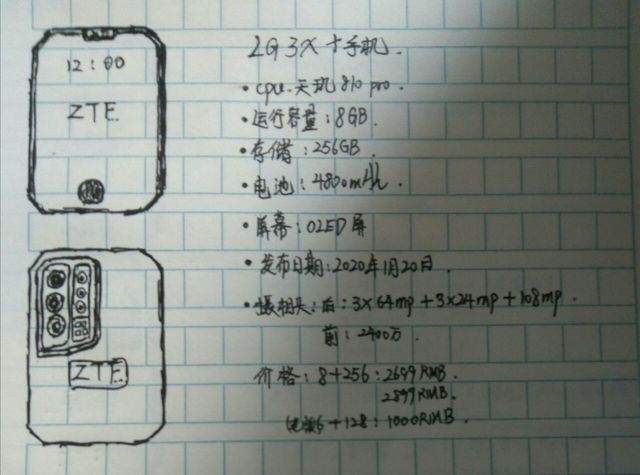 12:00
ZTE
ZTE
LG3X+手机.
• cpu.天玑810 pro.
• 运行容量:8GB.
• 存储:256GB.
• 电池:4800mAh.
• 屏幕:OLED屏
• 发布日期:2020年1月20日.
• 摄相头:后:3×64mp+3×24mp+108mp.
前:2400万.
价格:8+256:2699RMB.
2899RMB.
6+128:1000RMB.